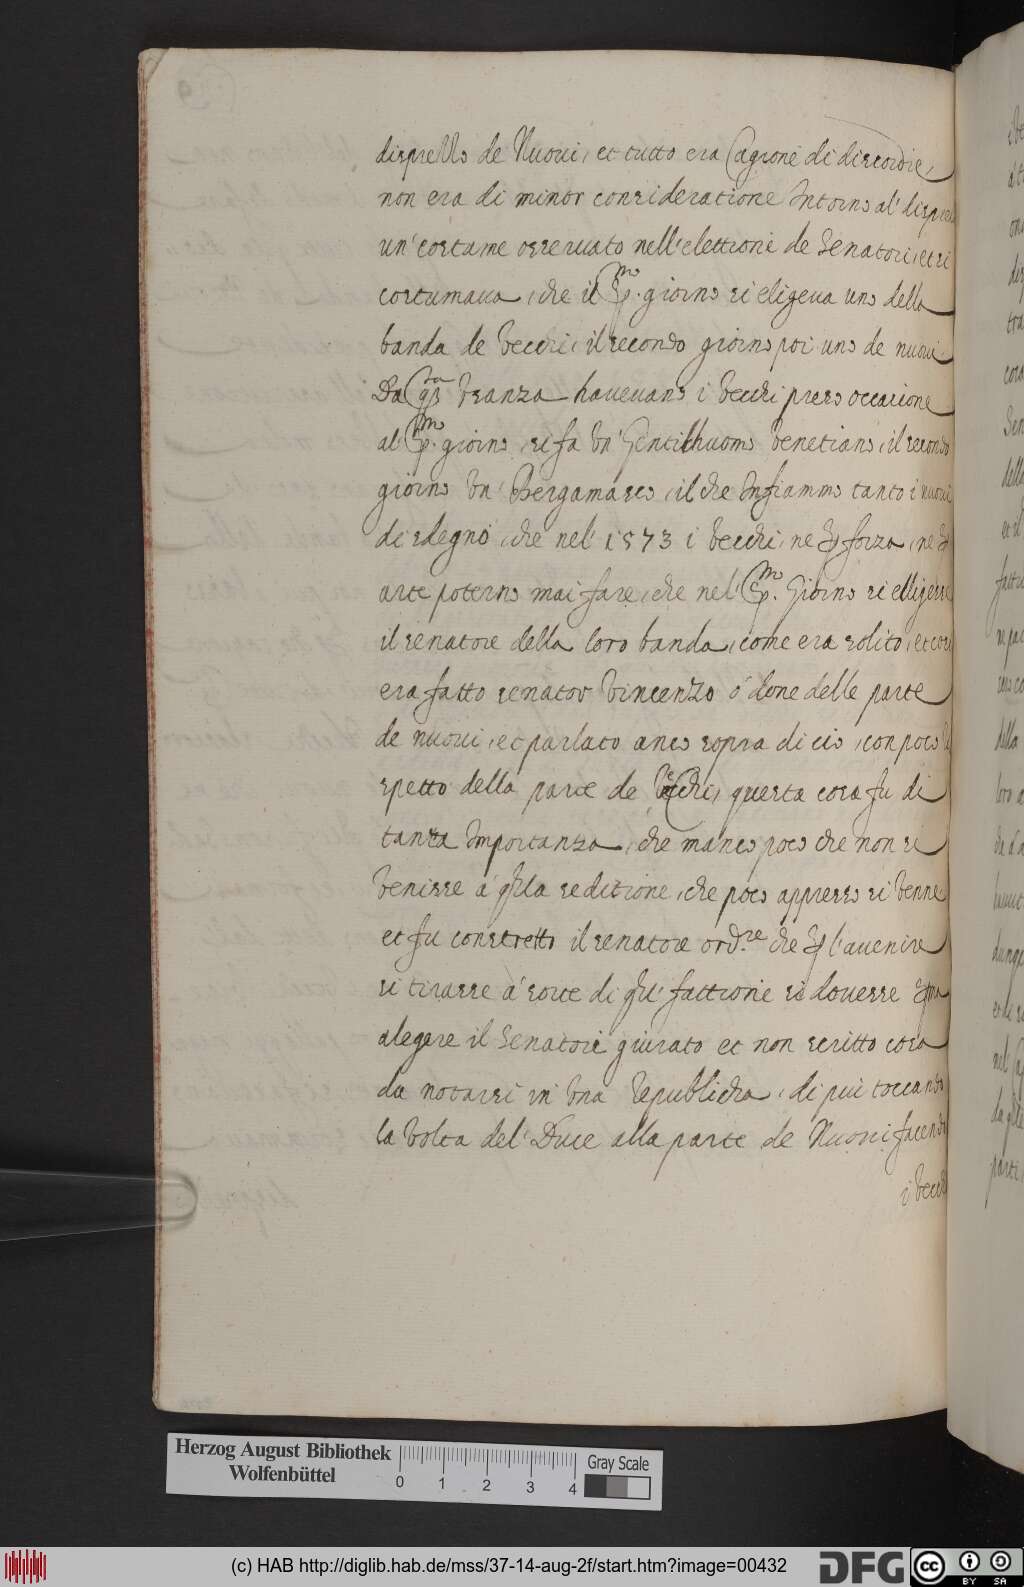 disprezzo de Nuoui, et tutto era Cagione di discordie,
non era di minor consideratione Intorno al' disprezzo
un' costume osseruato nell' elettione de Senatori, et si
costumaua, che il p.mo giorno si eligeua uno della
banda de Vecchi, il secondo giorno poi uno de nuoui
Da qsta Vsanza haueuano i Vecchi preso occasione
al p.mo giorno, si fa Vn' Gentilhuomo Venetiano, il secondo
giorno Vn' Bergamasco, il che Infiammò tanto i nuoui
di sdegno, che nel' 1573 i Vecchi, ne p forza, ne p
arte poterno mai fare, che nel' p.mo Giorno si elligesse
il senatore della loro banda, come era solito, et cosi
era fatto senator Vincenzo o done delle parte
de nuoui, et parlato anco sopra di cio, con poco
spetto della parte de Vecchi, questa cosa fu di
tanta Importanza, che manco poco che non si
Venisse a' qlla seditione, che poco appresso si Venne
et fu constretto il senatore ord.re che p l'auenire
si tirasse a' sorte di qll' fattione si douesse pma
alegere il Senatore giurato et non scritto cosa
da notarsi in Vna Republicha, di più toccando
la Volta del' Duce alla parte de Nuoui facendo
i Vecchi
Herzog August Bibliothek
Wolfenbüttel
0 1 2 3 4
Gray Scale
(c) HAB http://diglib.hab.de/mss/37-14-aug-2f/start.htm?image=00432
DFG
cc BY SA